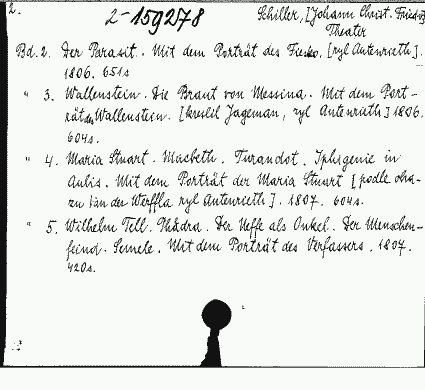 2.
2-159278
Schiller, [Johann Christ. Friedr.]
Theater
Bd. 2. Der Parasit. Mit dem Porträt des Fiesko. [ryl Antenrieth].
1806. 651 s
" 3. Wallenstein. Die Braut von Messina. Mit dem Port-
rät des Wallenstein. [kreslil Jageman, ryl Antenrieth] 1806.
604 s.
" 4. Maria Stuart. Macbeth. Turandot. Iphigenie in
Aulis. Mit dem Porträt der Maria Stuart [podle obra-
zu van der Werffla ryl Antenrieth]. 1807. 604 s.
" 5. Wilhelm Tell. Phädra. Der Neffe als Onkel. Der Menschen-
feind. Semele. Mit dem Porträt des Verfassers. 1807.
420 s.